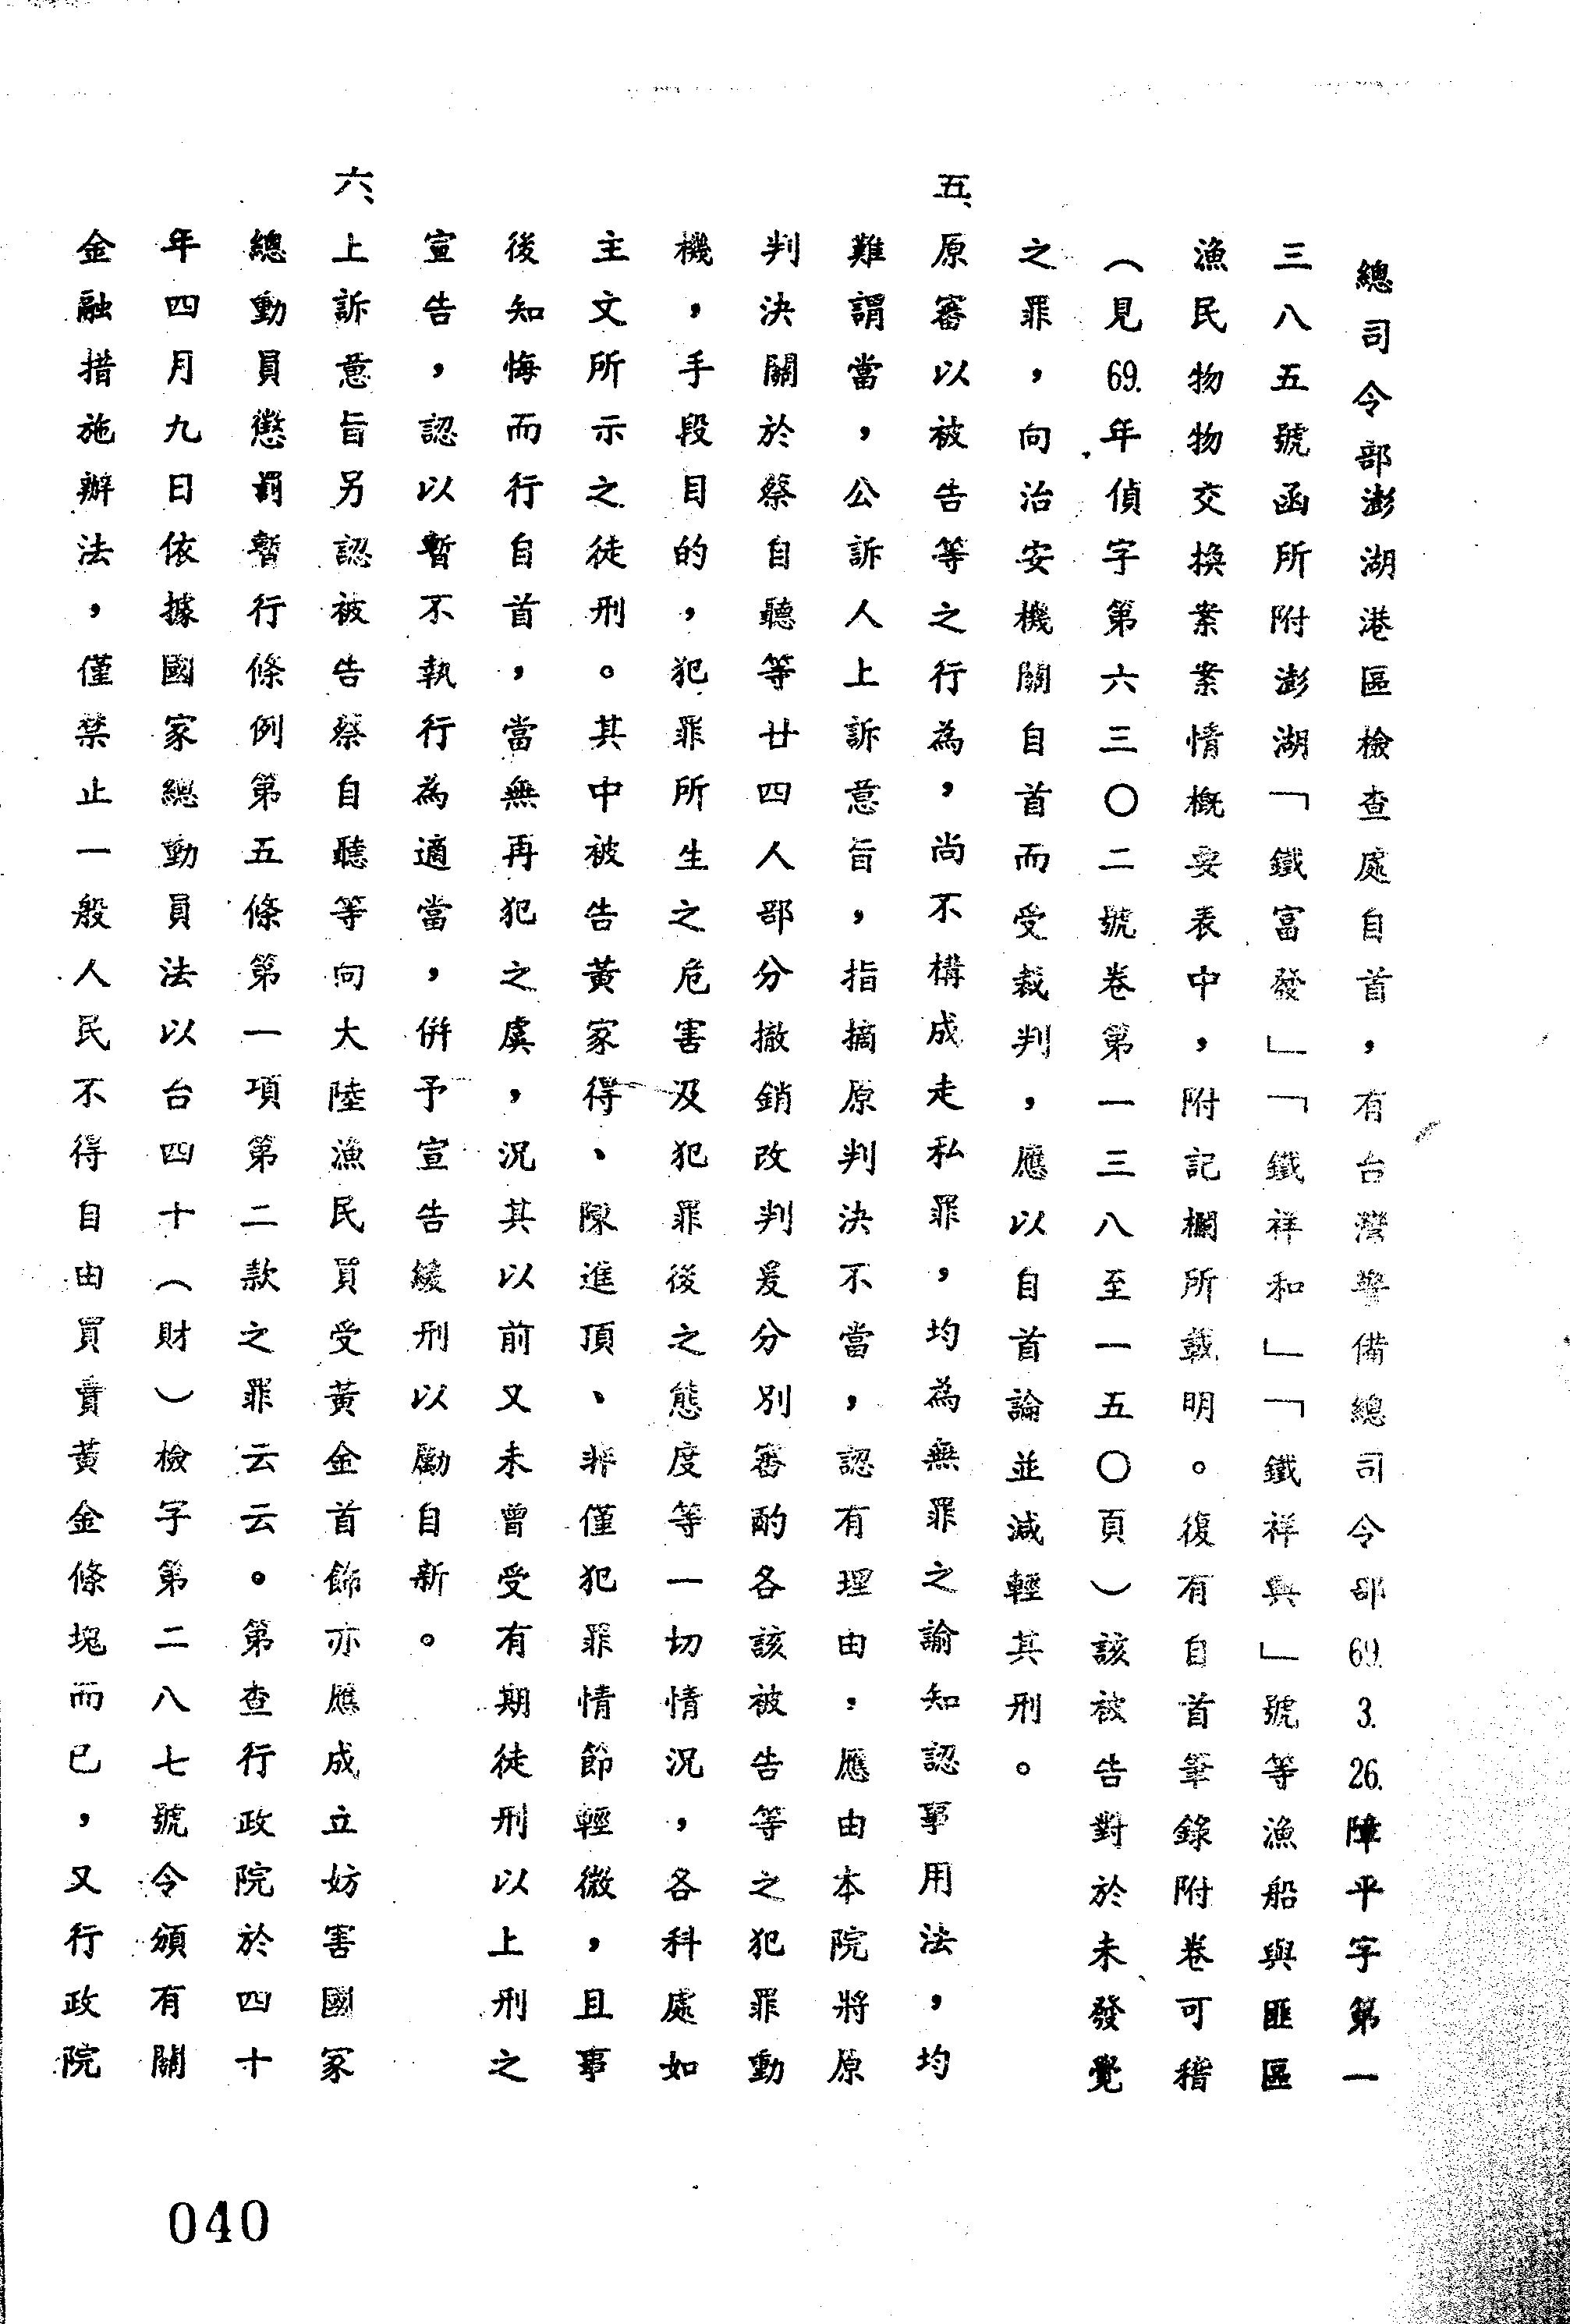 總司令部澎湖港區檢查處自首，有台灣警備總司令部69.3.26.障平字第一
三八五號函所附澎湖「鐵富發」「鐵祥和」「鐵祥興」號等漁船與匪區
漁民物物交換案案情概要表中，附記欄所載明。復有自首筆錄附卷可稽
（見69.年偵字第六三〇二號卷第一三八至一五〇頁）該被告對於未發覺
之罪，向治安機關自首而受裁判，應以自首論並減輕其刑。
五、原審以被告等之行為，尚不構成走私罪，均為無罪之諭知認事用法，均
難謂當，公訴人上訴意旨，指摘原判決不當，認有理由，應由本院將原
判決關於蔡自聽等廿四人部分撤銷改判爰分別審酌各該被告等之犯罪動
機，手段目的，犯罪所生之危害及犯罪後之態度等一切情況，各科處如
主文所示之徒刑。其中被告黃家得、陳進頂、非僅犯罪情節輕微，且事
後知悔而行自首，當無再犯之虞，況其以前又未曾受有期徒刑以上刑之
宣告，認以暫不執行為適當，併予宣告緩刑以勵自新。
六、上訴意旨另認被告蔡自聽等向大陸漁民買受黃金首飾亦應成立妨害國家
總動員懲罰暫行條例第五條第一項第二款之罪云云。第查行政院於四十
年四月九日依據國家總動員法以台四十（財）檢字第二八七號令頒有關
金融措施辦法，僅禁止一般人民不得自由買賣黃金條塊而已，又行政院
040